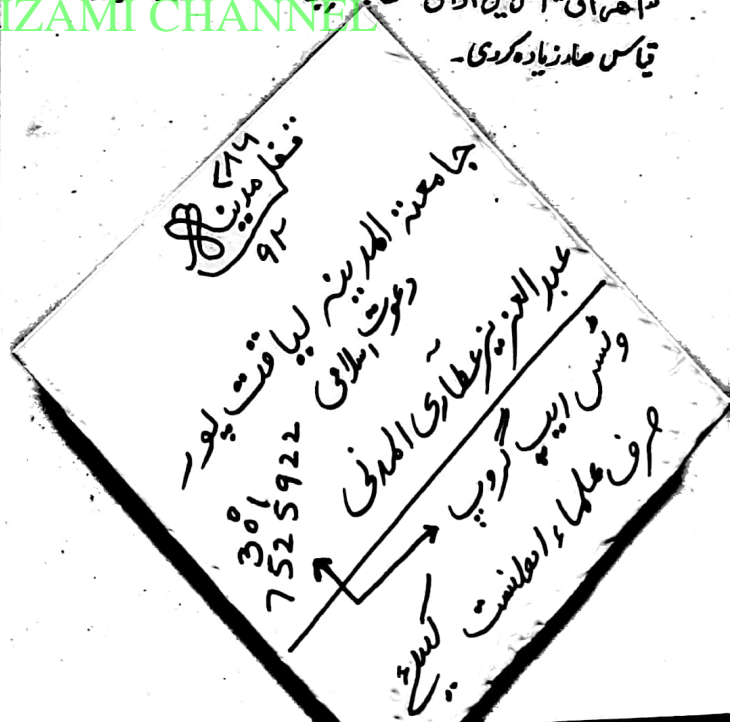 IZAMI CHANNEL
قیاس صادر زیادہ کردی۔
۷۸۶
قفل مدینہ
۹۲
جامعتہ المدینہ لیاقت پور
دعوت اسلامی
عبدالعزیز عطاری المدنی
0301
7525922
وٹس ایپ گروپ
صرف علماء اہلسنت کیلئے